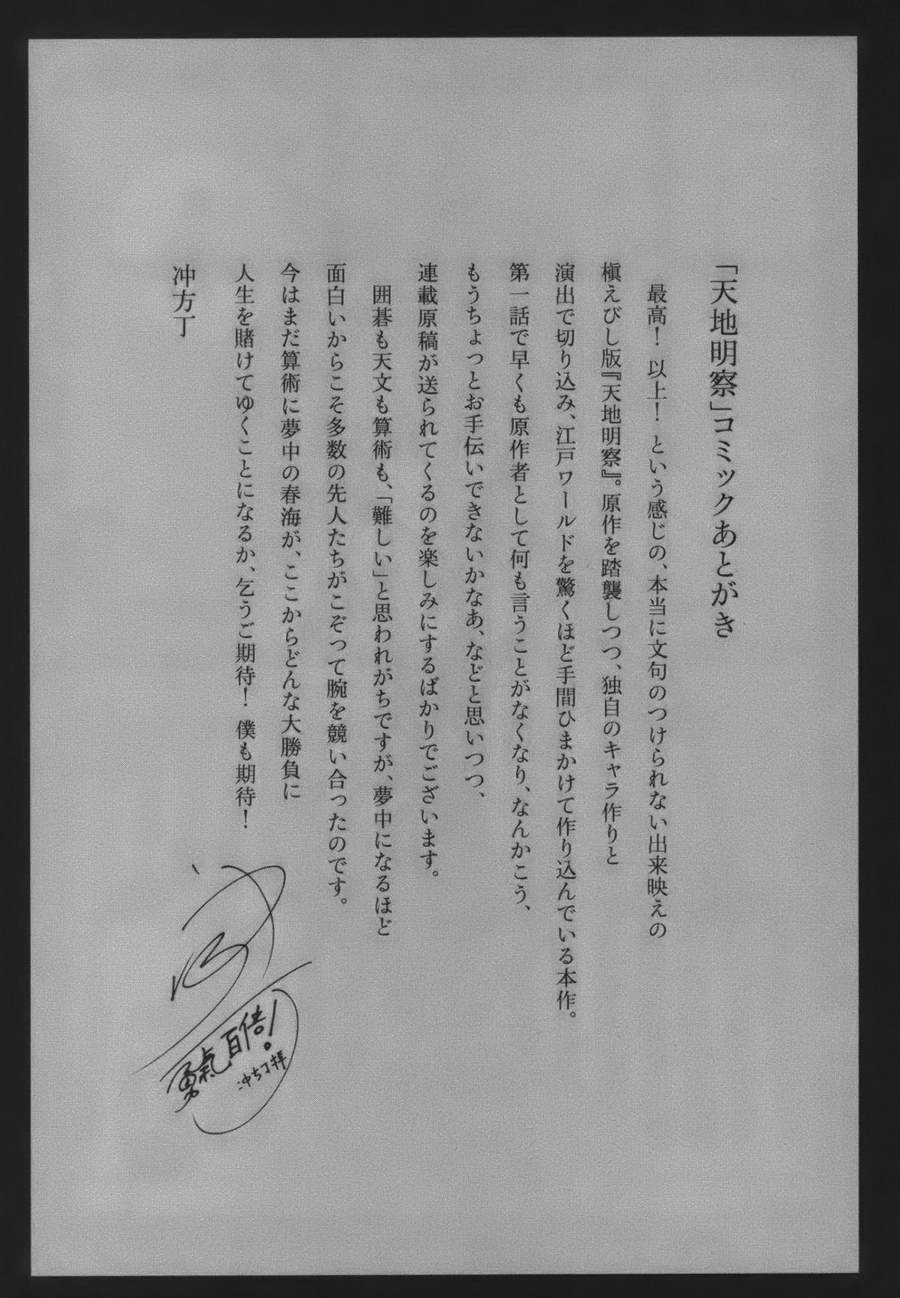 「天地明察」コミックあとがき
最高！ 以上！ という感じの、本当に文句のつけられない出来映えの
槇えびし版『天地明察』。原作を踏襲しつつ、独自のキャラ作りと
演出で切り込み、江戸ワールドを驚くほど手間ひまかけて作り込んでいる本作。
第一話で早くも原作者として何も言うことがなくなり、なんかこう、
もうちょっとお手伝いできないかなあ、などと思いつつ、
連載原稿が送られてくるのを楽しみにするばかりでございます。
囲碁も天文も算術も、「難しい」と思われがちですが、夢中になるほど
面白いからこそ多数の先人たちがこぞって腕を競い合ったのです。
今はまだ算術に夢中の春海が、ここからどんな大勝負に
人生を賭けてゆくことになるか、乞うご期待！ 僕も期待！
冲方丁
勇氣百倍！
冲方丁拝